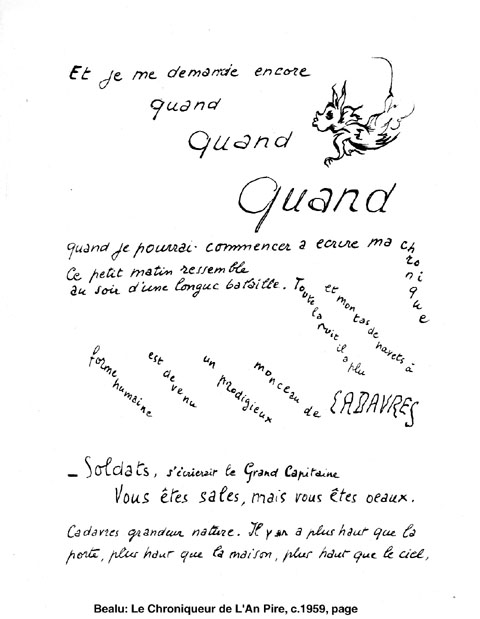 Et je me demande encore
quand
Quand
Quand
quand je pourrai commencer a ecrire ma chronique
Ce petit matin ressemble
au soir d'une longue bataille. Toute la nuit il a plu
et mon tas de navets à
forme humaine est devenu un prodigieux monceau de CADAVRES
_ Soldats, s'écrierait le Grand Capitaine
Vous êtes sales, mais vous êtes beaux.
Cadavres grandeur nature. Il y en a plus haut que la
porte, plus haut que la maison, plus haut que le ciel,
Bealu: Le Chroniqueur de L'An Pire, c.1959, page